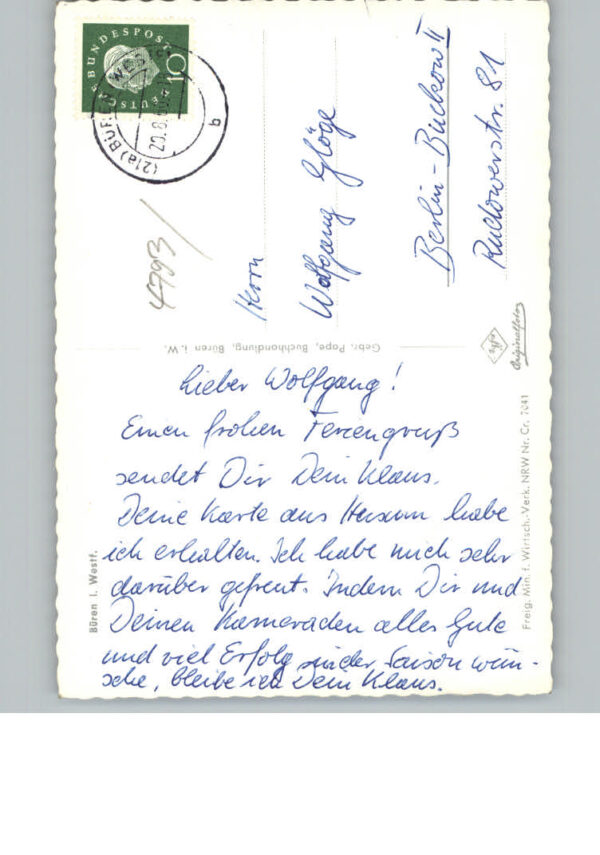 Lieber Wolfgang!
Einen frohen Feriengruß
sendet Dir Dein Klaus.
Deine Karte aus Husum habe
ich erhalten. Ich habe mich sehr
darüber gefreut. Indem Dir und
Deinen Kameraden alles Gute
und viel Erfolg in der Saison wün-
sche, bleibe ich Dein Klaus.
Herrn
Wolfgang Glöge
Berlin-Buckow II
Rudowerstr. 81
4793
DEUTSCHE BUNDESPOST
10
(21a) BÜREN (WESTF)
b
Gebr. Pape, Buchhandlung, Büren i. W.
Agfa
Originalfoto
Büren i. Westf.
Freig. Min. f. Wirtsch.-Verk. NRW Nr. Cr. 7041